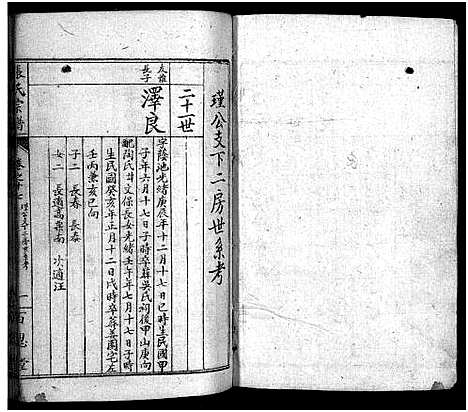 瑾公支下二房世系考
二十一世
友維長子
澤良
字蔭池光緒庚辰年十二月十七日巳時生民國甲
子年六月十七日子時卒蘇吳氏祠後甲山庚向
配陶氏甘文保長女光緒壬午年七月十七日子時
生民國癸亥年正月十二日戌時卒葬姜園宅左
壬丙兼亥巳向
子二 長春 長泰
女二 長適高業南 次適汪
張氏宗譜